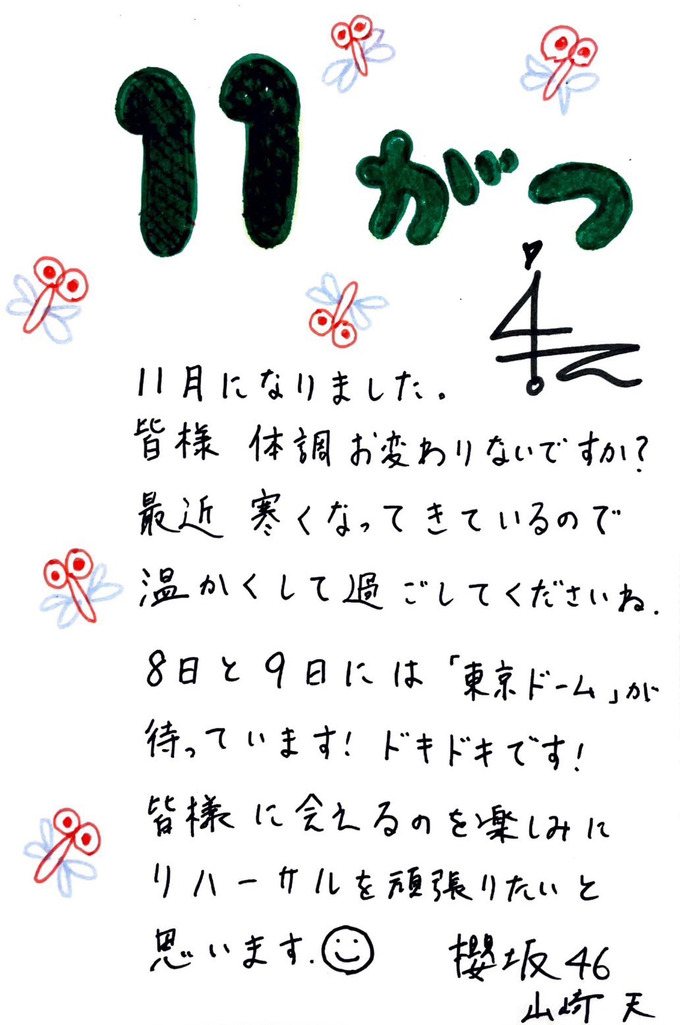 11がつ
11月になりました。
皆様 体調お変わりないですか?
最近 寒くなってきているので
温かくして過ごしてくださいね.
8日と9日には「東京ドーム」が
待っています! ドキドキです!
皆様に会えるのを楽しみに
リハーサルを頑張りたいと
思います.
櫻坂46
山﨑 天